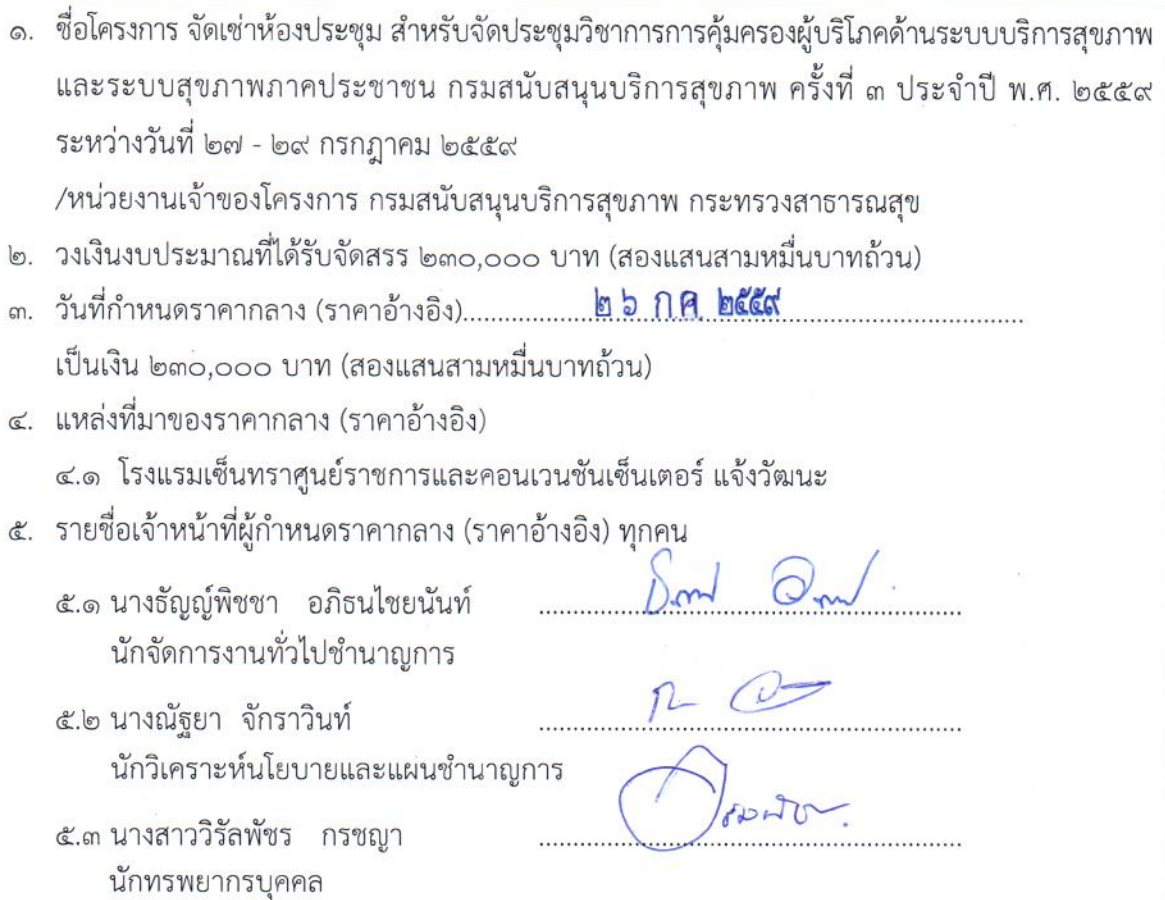 ๑. ชื่อโครงการ จัดเช่าห้องประชุม สำหรับจัดประชุมวิชาการการคุ้มครองผู้บริโภคด้านระบบบริการสุขภาพ
และระบบสุขภาพภาคประชาชน กรมสนับสนุนบริการสุขภาพ ครั้งที่ ๓ ประจำปี พ.ศ. ๒๕๕๙
ระหว่างวันที่ ๒๗ - ๒๙ กรกฎาคม ๒๕๕๙
/หน่วยงานเจ้าของโครงการ กรมสนับสนุนบริการสุขภาพ กระทรวงสาธารณสุข
๒. วงเงินงบประมาณที่ได้รับจัดสรร ๒๓๐,๐๐๐ บาท (สองแสนสามหมื่นบาทถ้วน)
๓. วันที่กำหนดราคากลาง (ราคาอ้างอิง)..................๒ ๖ ก.ค. ๒๕๕๙..............................
เป็นเงิน ๒๓๐,๐๐๐ บาท (สองแสนสามหมื่นบาทถ้วน)
๔. แหล่งที่มาของราคากลาง (ราคาอ้างอิง)
๔.๑ โรงแรมเซ็นทราศูนย์ราชการและคอนเวนชันเซ็นเตอร์ แจ้งวัฒนะ
๕. รายชื่อเจ้าหน้าที่ผู้กำหนดราคากลาง (ราคาอ้างอิง) ทุกคน
๕.๑ นางธัญญ์พิชชา อภิธนไชยนันท์ ..................................................
นักจัดการงานทั่วไปชำนาญการ
๕.๒ นางณัฐยา จักราวินท์ ..................................................
นักวิเคราะห์นโยบายและแผนชำนาญการ
๕.๓ นางสาววิรัลพัชร กรชญา ..................................................
นักทรพยากรบุคคล